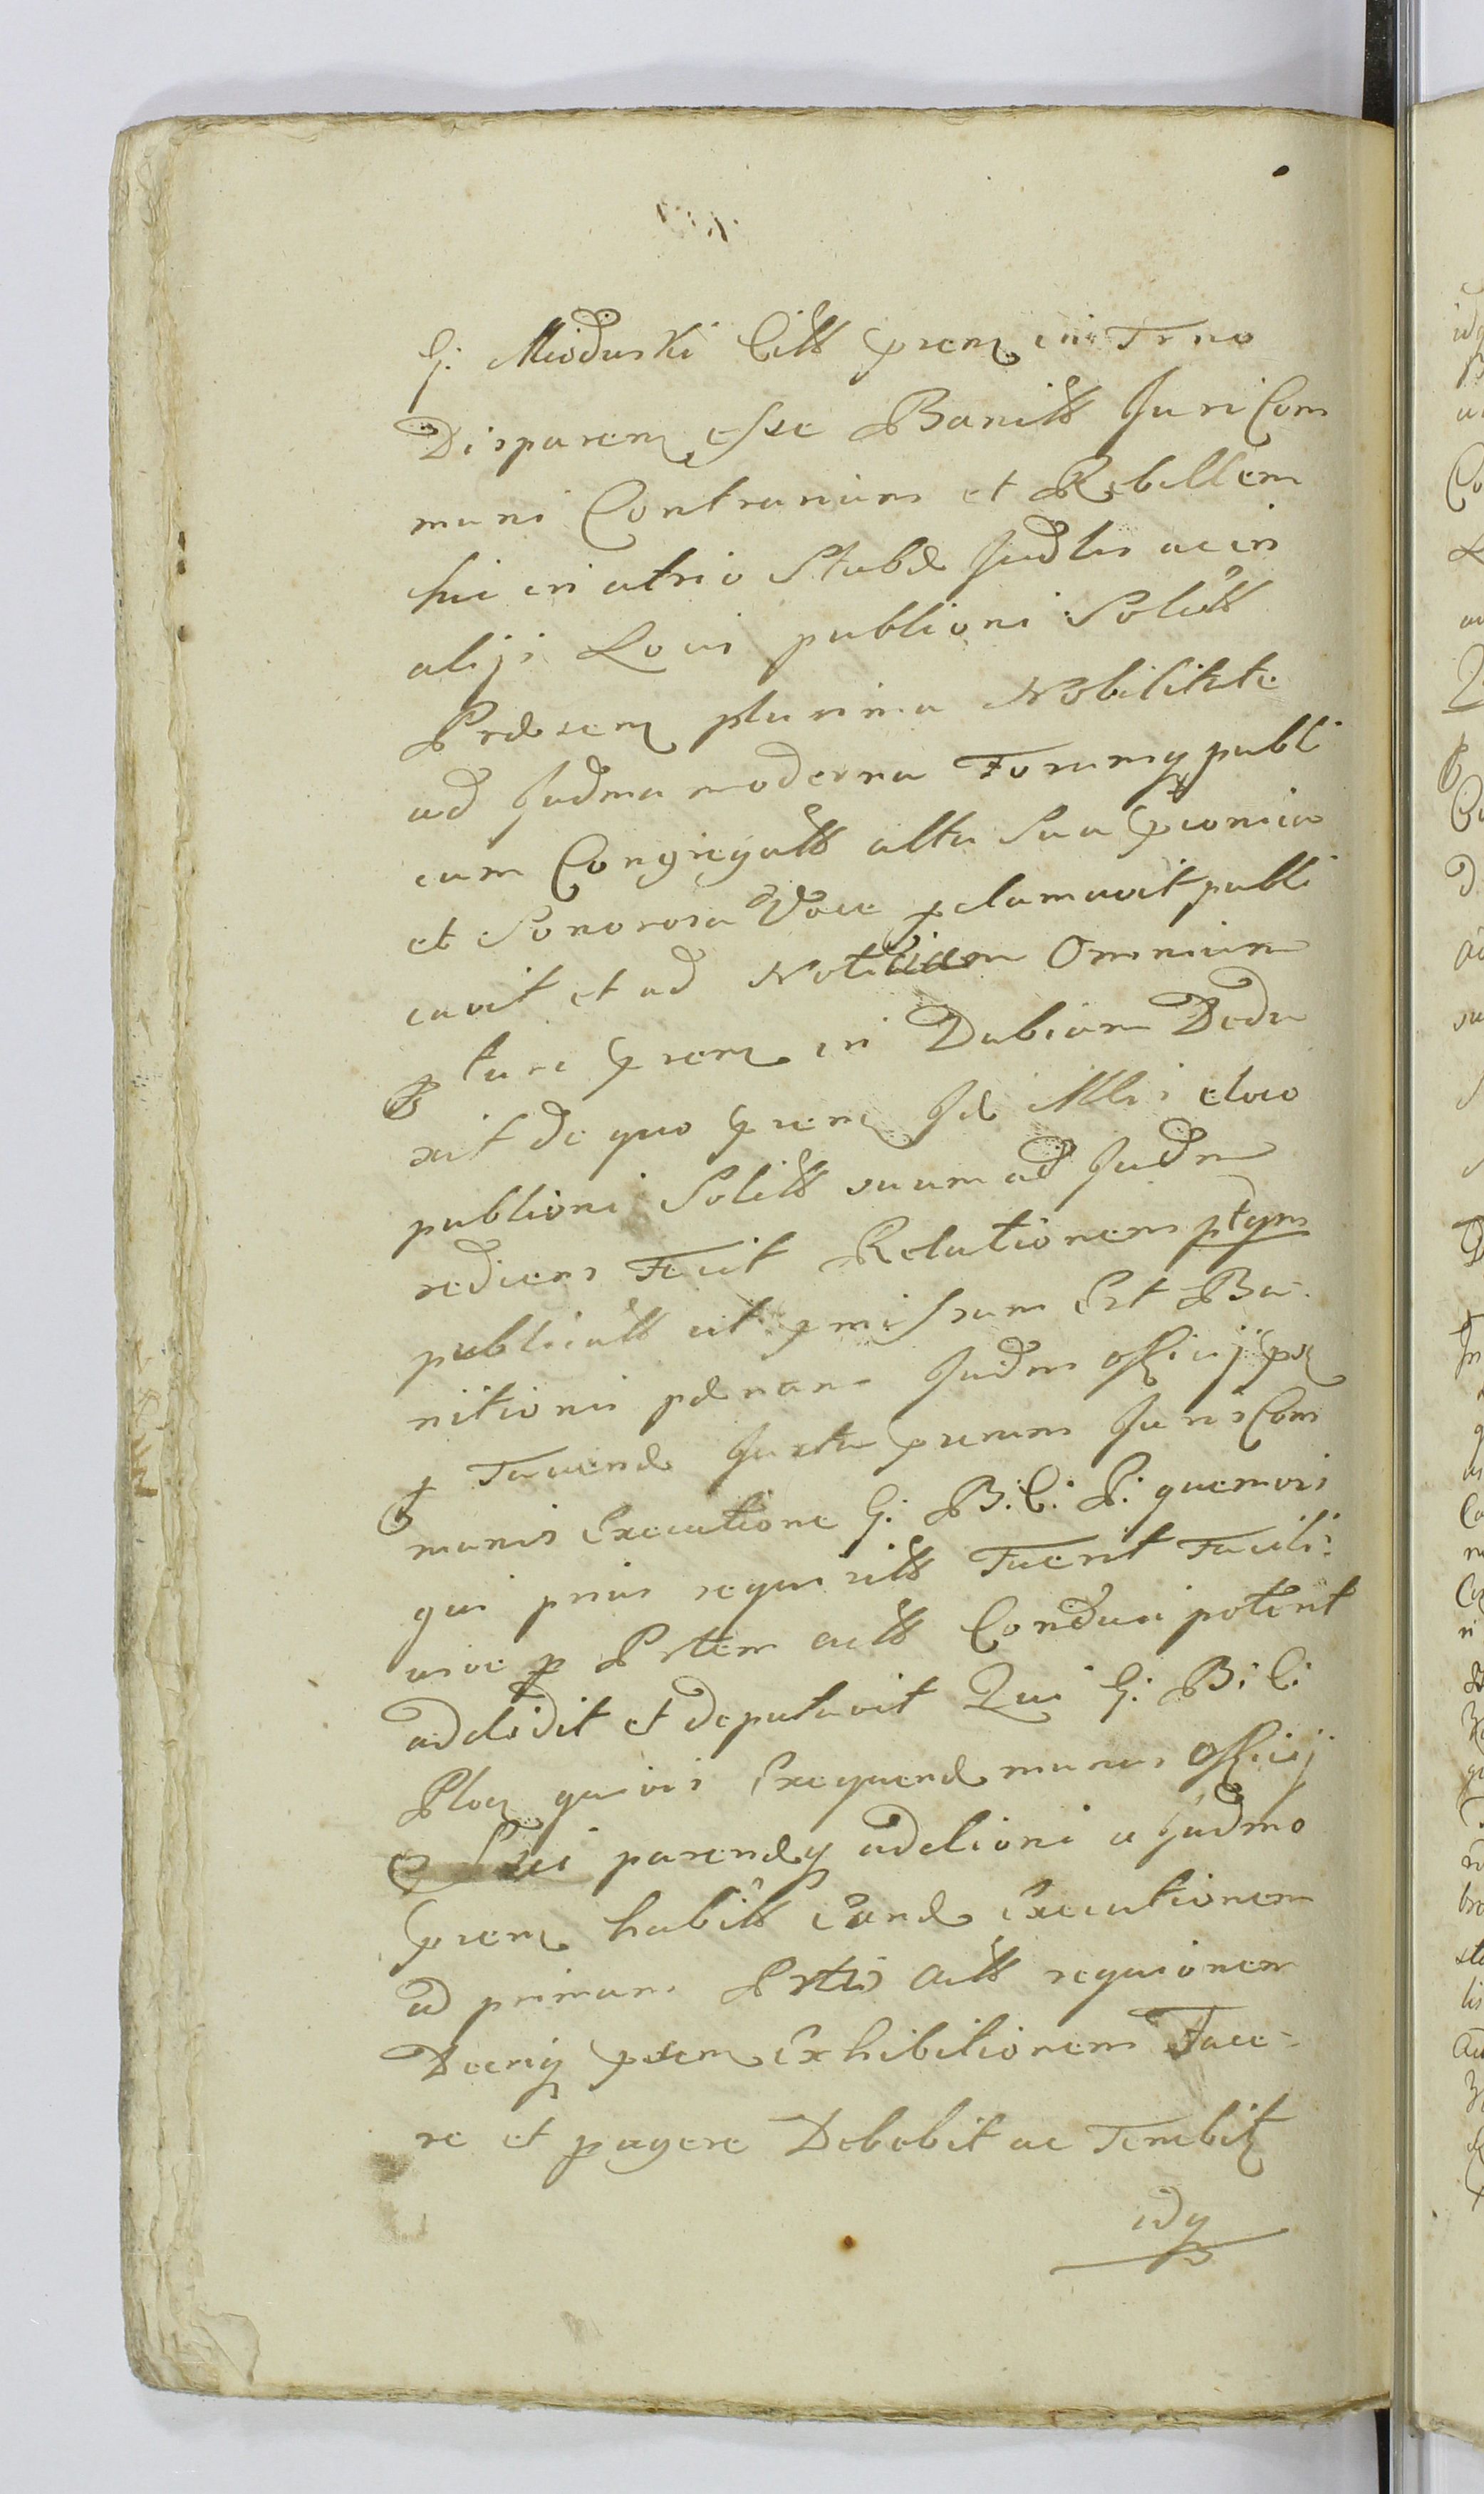 G: Mioduski Citt prem in Trno
Disparem esse Banitt Juri Com
muni Contrarium et Rebellem
hic in atrio Stubæ Judlis ac in
alijs Locis publioni Solitt
Præsem plurima Nobilitate
ad Judma moderna Forumq publi
cum Congregatt alta Sua
et Sonorosa Voce pclamavit publi
cavit et ad Noticiam Omnium
prem in Dubiam Dedu
xit de quo prem
publioni Solitt suum ad Judm
rediens Fecit Relationem
publicatt ut pmissum Est Ba
nitionis pænam Judm officij
Juxta prium Juris Com
munis Executione G: B: C: P: quemvis
qui prius requisitt Fuerit Facili
usve p Prtem actt Conduci poterit
addidit et deputavit Qui G: B: C:
Ploc quivis Exequend munus Officij
sui parendq addioni a Judmo
prem habitt Eand Executionem
ad primam Prtis Actt requionem
Decriq psem Exhibitionem Face
re et pagere Debebit ac Tenebit
idq